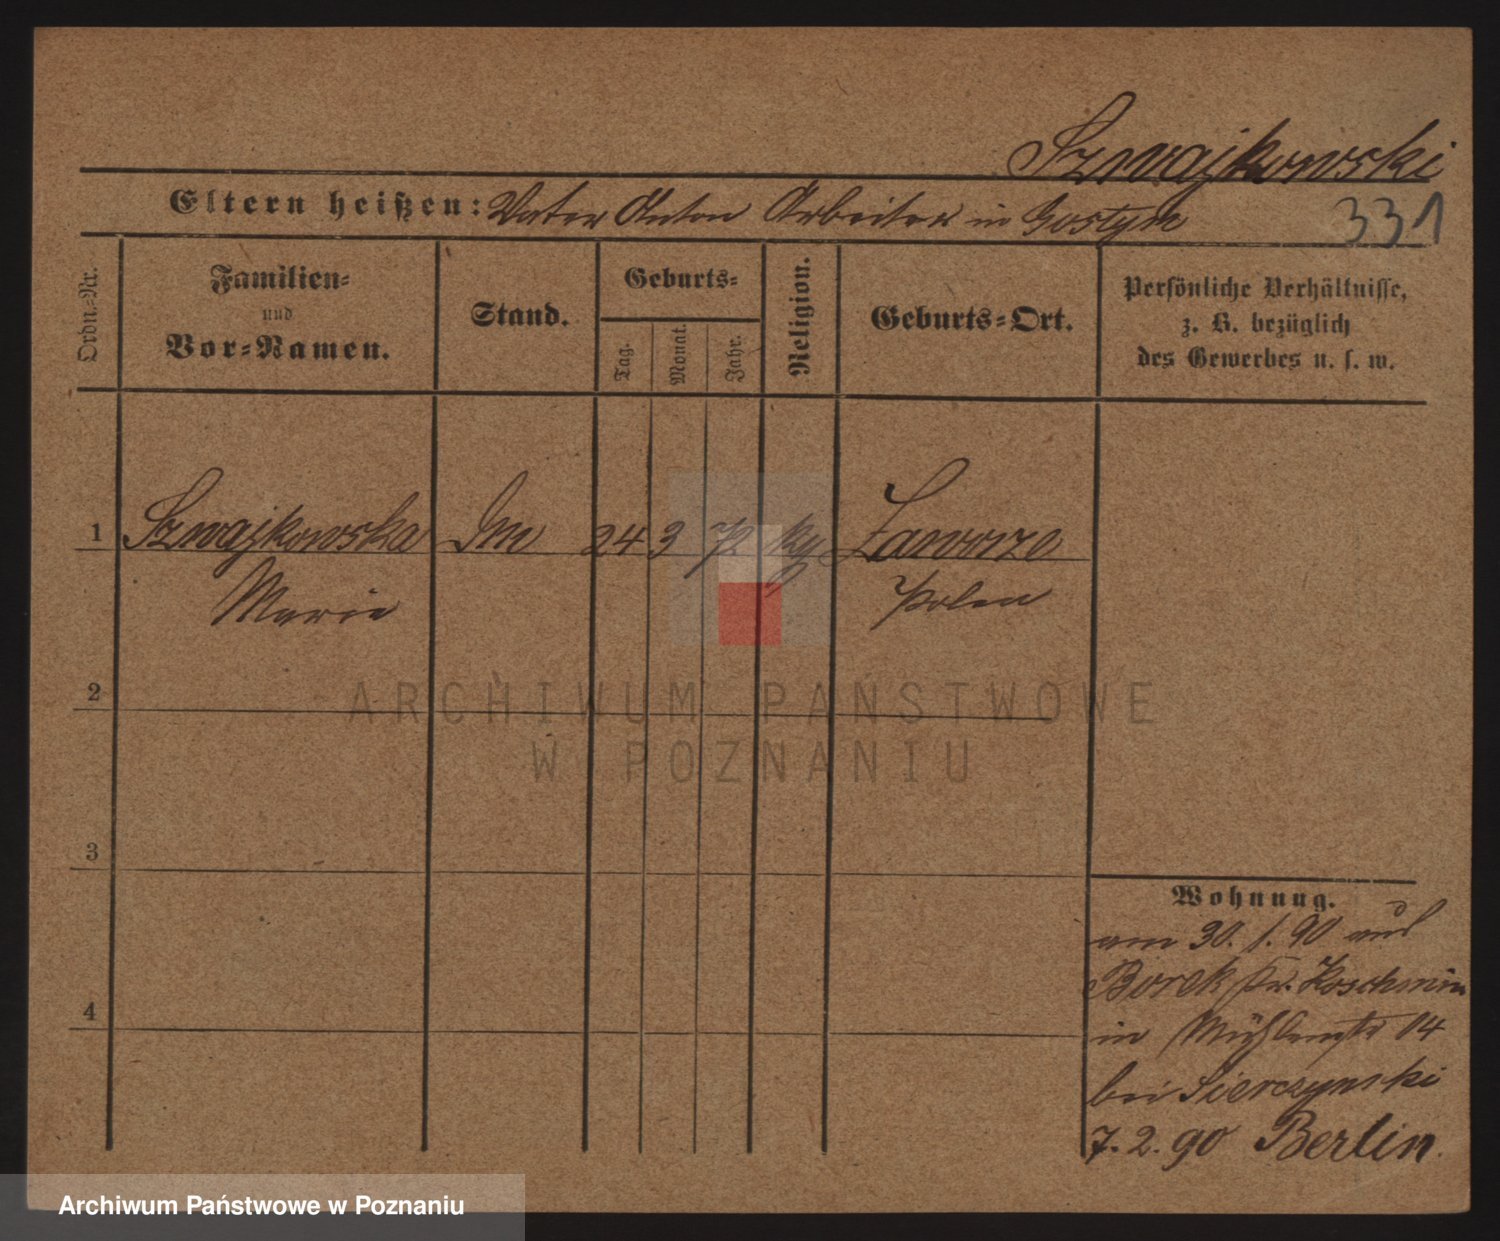 Szwajkowski
Eltern heißen: Vater Anton Arbeiter in Gostyn
331
Ordn.-Nr.
Familien-
und
Vor-Namen.
Stand.
Geburts-
Tag.
Monat.
Jahr.
Religion.
Geburts-Ort.
Persönliche Verhältnisse,
z. B. bezüglich
des Gewerbes u. s. w.
1 Szwajkowska 24 3 72 kg Zaworze
Marie Polen
2
ARCHIWUM PAŃSTWOWE
W POZNANIU
3
Wohnung.
am 30. 1. 90 aus
Borek Kr. Koschmin
4
in Mühlenstr 14
bei Sierczynski
7. 2. 90 Berlin.
Archiwum Państwowe w Poznaniu